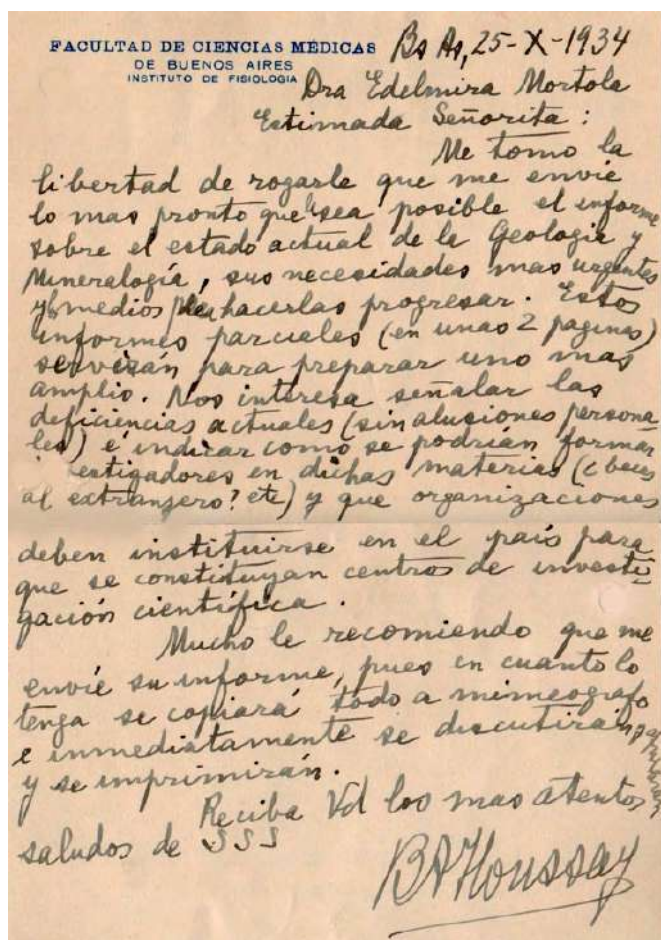 FACULTAD DE CIENCIAS MÉDICAS
DE BUENOS AIRES
INSTITUTO DE FISIOLOGIA
Bs As, 25-X-1934
Dra Edelmira Mortola
Estimada Señorita:
Me tomo la
libertad de rogarle que me envie
lo mas pronto que sea posible el informe
sobre el estado actual de la Geologia y
Mineralogía, sus necesidades mas urgentes
y medios hacerlas progresar. Estos
informes parciales (en unas 2 paginas)
servirán para preparar uno mas
amplio. Nos interesa señalar las
deficiencias actuales (sin alusiones persona-
les) e indicar como se podrían formar
estigadores en dichas materias (¿becas
al extranjero? etc) y que organizaciones
deben instituirse en el país para
que se constituyan centros de investi-
gación científica.
Mucho le recomiendo que me
envie su informe, pues en cuanto lo
tenga se copiará todo a mimeografo
e inmediatamente se discutirán
y se imprimirán.
Reciba Vd los mas atentos
saludos de SSS
BAHoussay